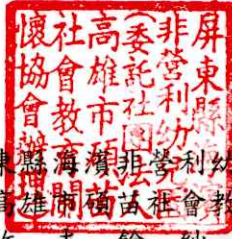 屏東縣海濱
非營利幼兒園
(委託社團法人
高雄市碩苗
社會教育關
懷協會辦理
東縣海濱非營利幼
高雄市碩苗社會教